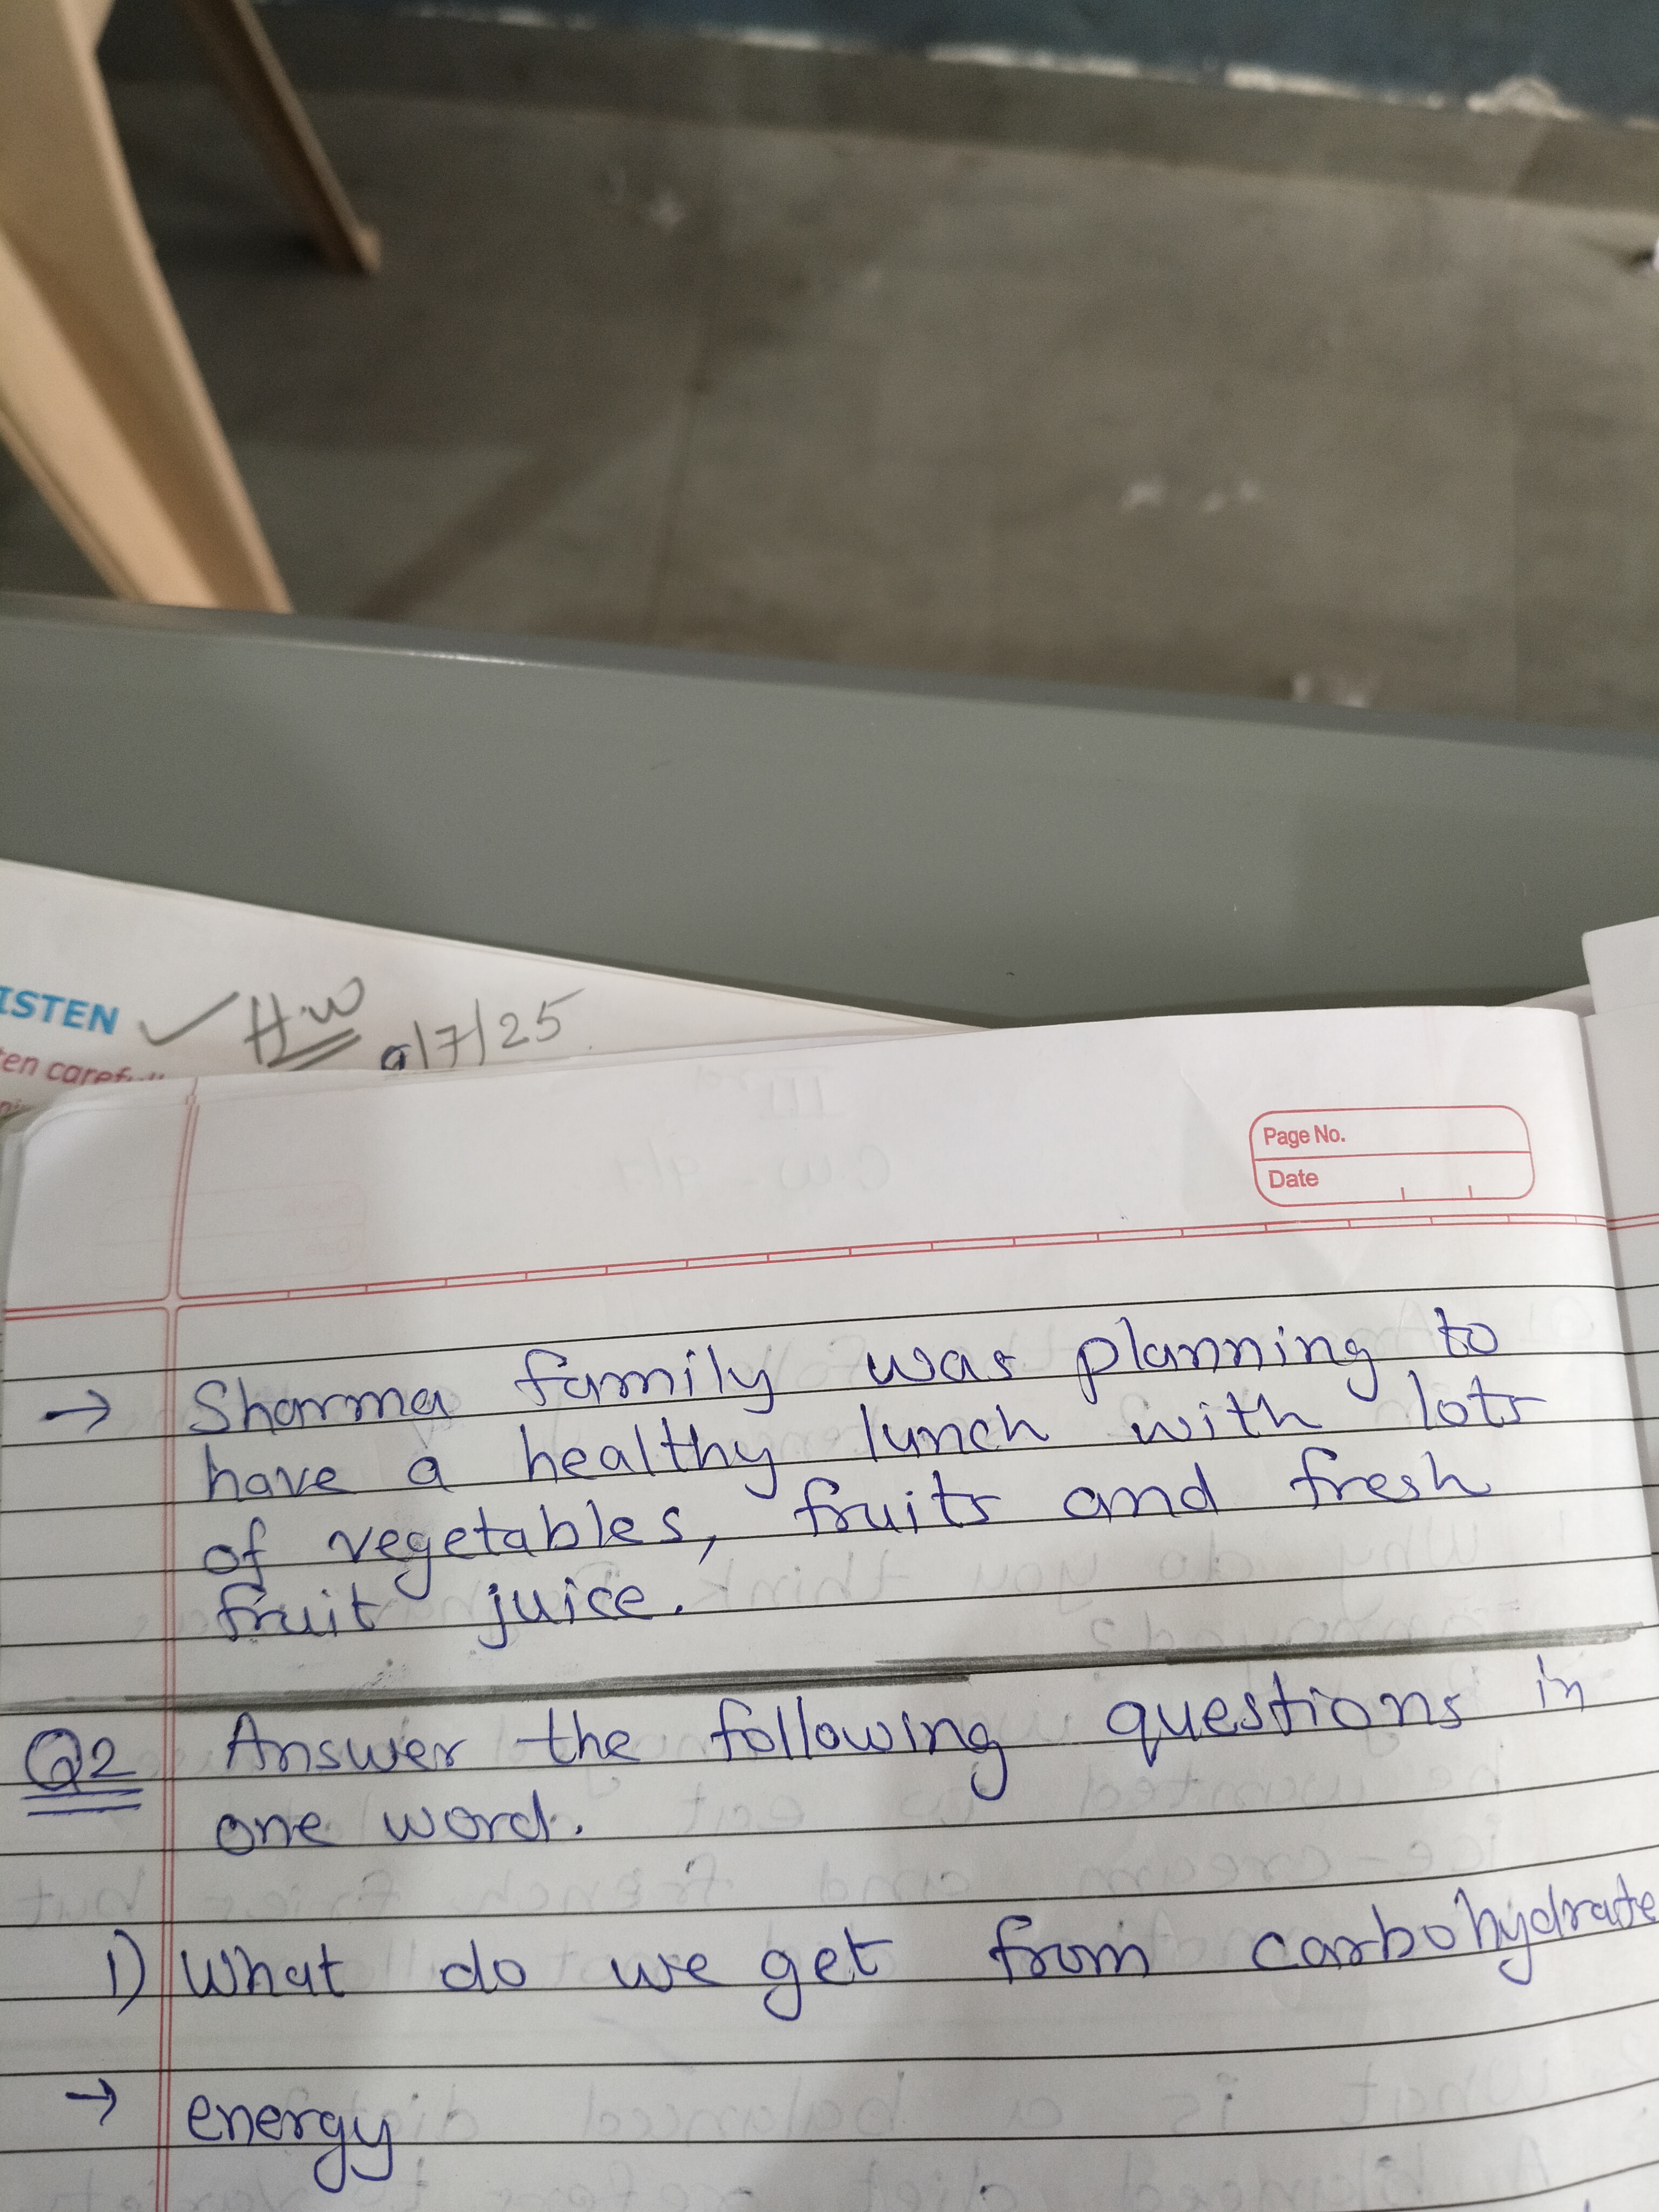 ISTEN ✓ H.W 9/7/25
ten caref
Page No.
Date
→ Sharma family was planning to
have a healthy lunch with lots
of vegetables, fruits and fresh
fruit juice.
Q2 Answer the following questions in
one word.
1) What do we get from carbohydrate
→ energy